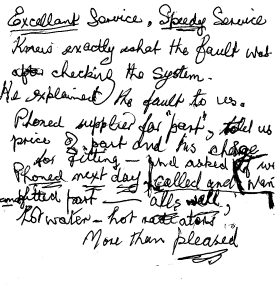 Excellant Service, Speedy Service
Knew exactly what the fault was
after checking the system.
He explained the fault to us.
Phoned supplier for "part", told us
price of part and his charge
for fitting — and asked if we
Phoned next day called and
fitted part — alls well,
hot water — hot radiators.
More than pleased